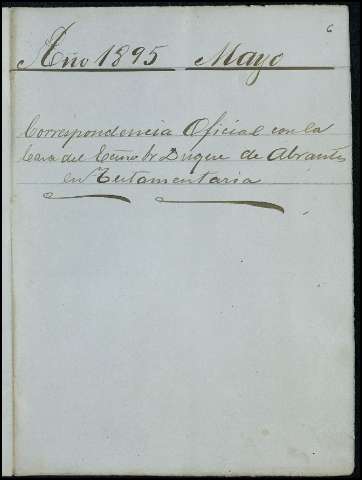 6
Año 1895 Mayo
Correspondencia Oficial con la
Casa del Exmo Sr Duque de Abrantes
en Testamentaria